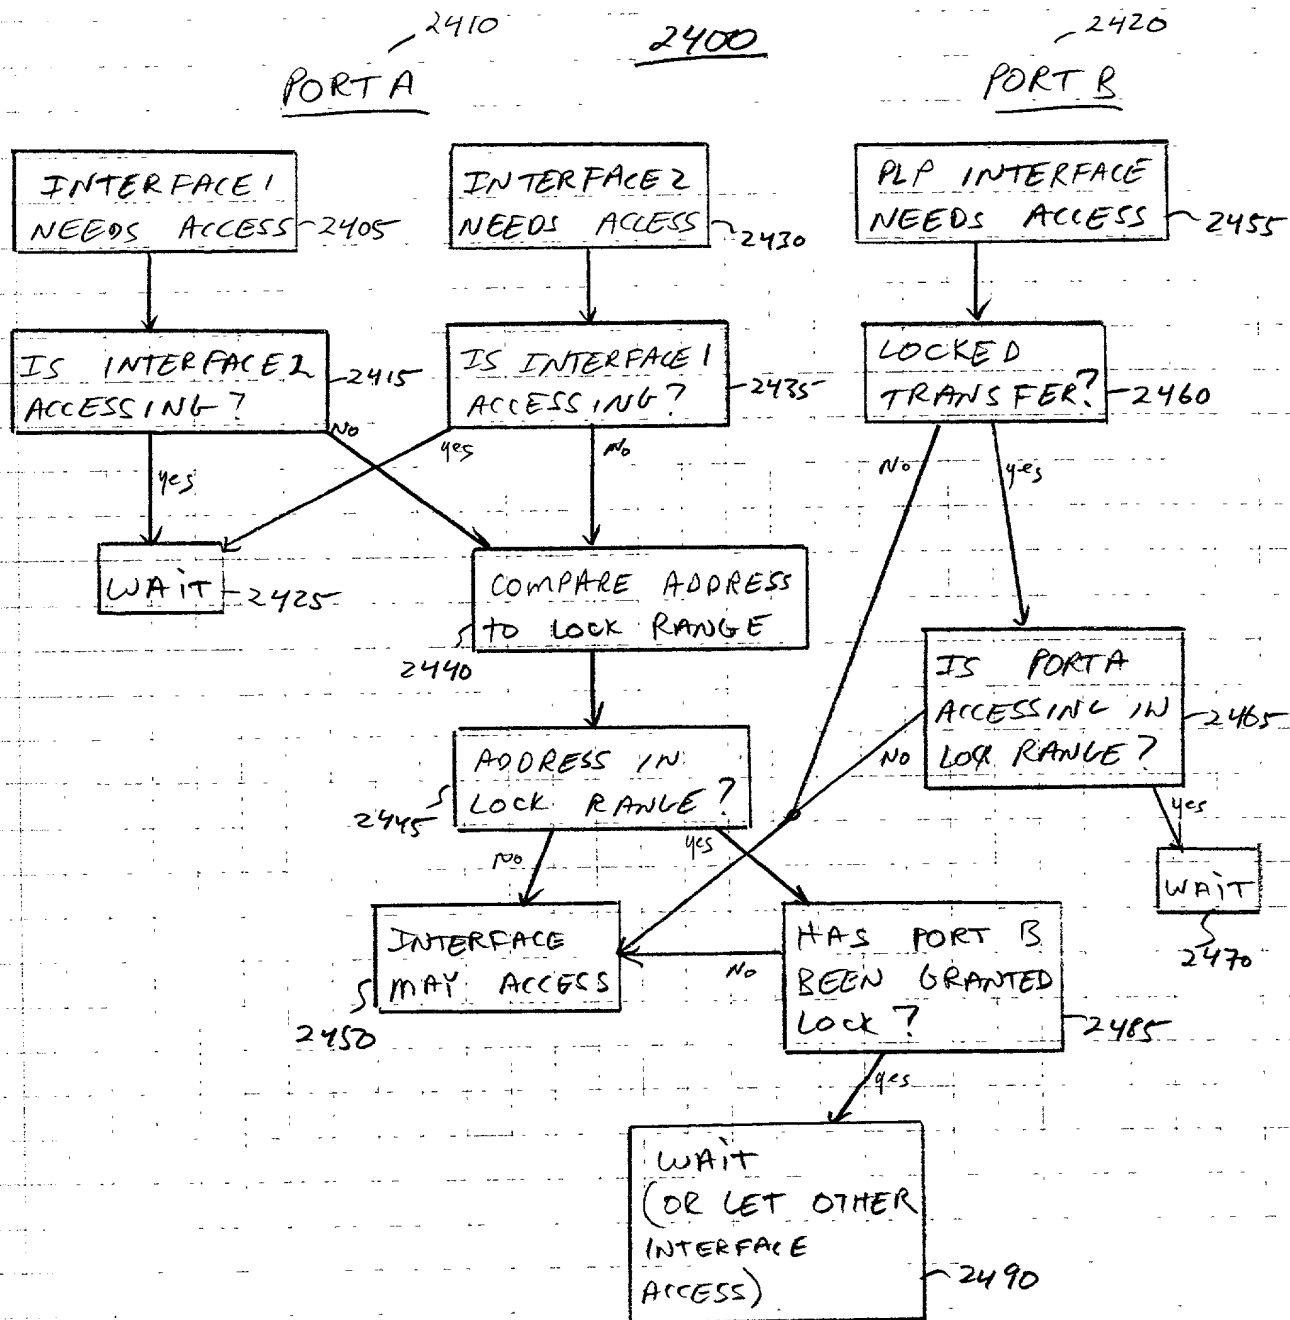 2410
2400
2420
PORT A
PORT B
INTERFACE 1
NEEDS ACCESS
2405
INTERFACE 2
NEEDS ACCESS
2430
PLP INTERFACE
NEEDS ACCESS
2455
IS INTERFACE 2
ACCESSING?
2415
IS INTERFACE 1
ACCESSING?
2435
LOCKED
TRANSFER?
2460
No
yes
yes
No
No
yes
WAIT
2425
COMPARE ADDRESS
to LOCK RANGE
2440
IS PORT A
ACCESSING IN
LOCK RANGE?
2465
No
yes
ADDRESS IN
LOCK RANGE?
2445
No
yes
WAIT
2470
INTERFACE
MAY ACCESS
2450
No
HAS PORT B
BEEN GRANTED
LOCK?
2485
yes
WAIT
(OR LET OTHER
INTERFACE
ACCESS)
2490